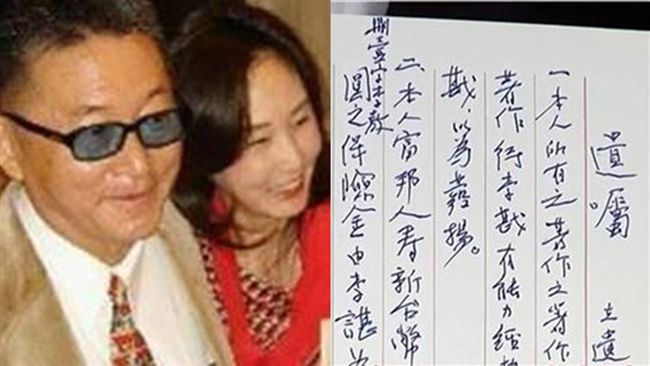 遺囑。 立遺
一本人所有之著作之著作
著作 李戡有能力經
戡，以為發揚。
二、本人富邦人壽新台幣
字李敖
圓之保險金由李諶